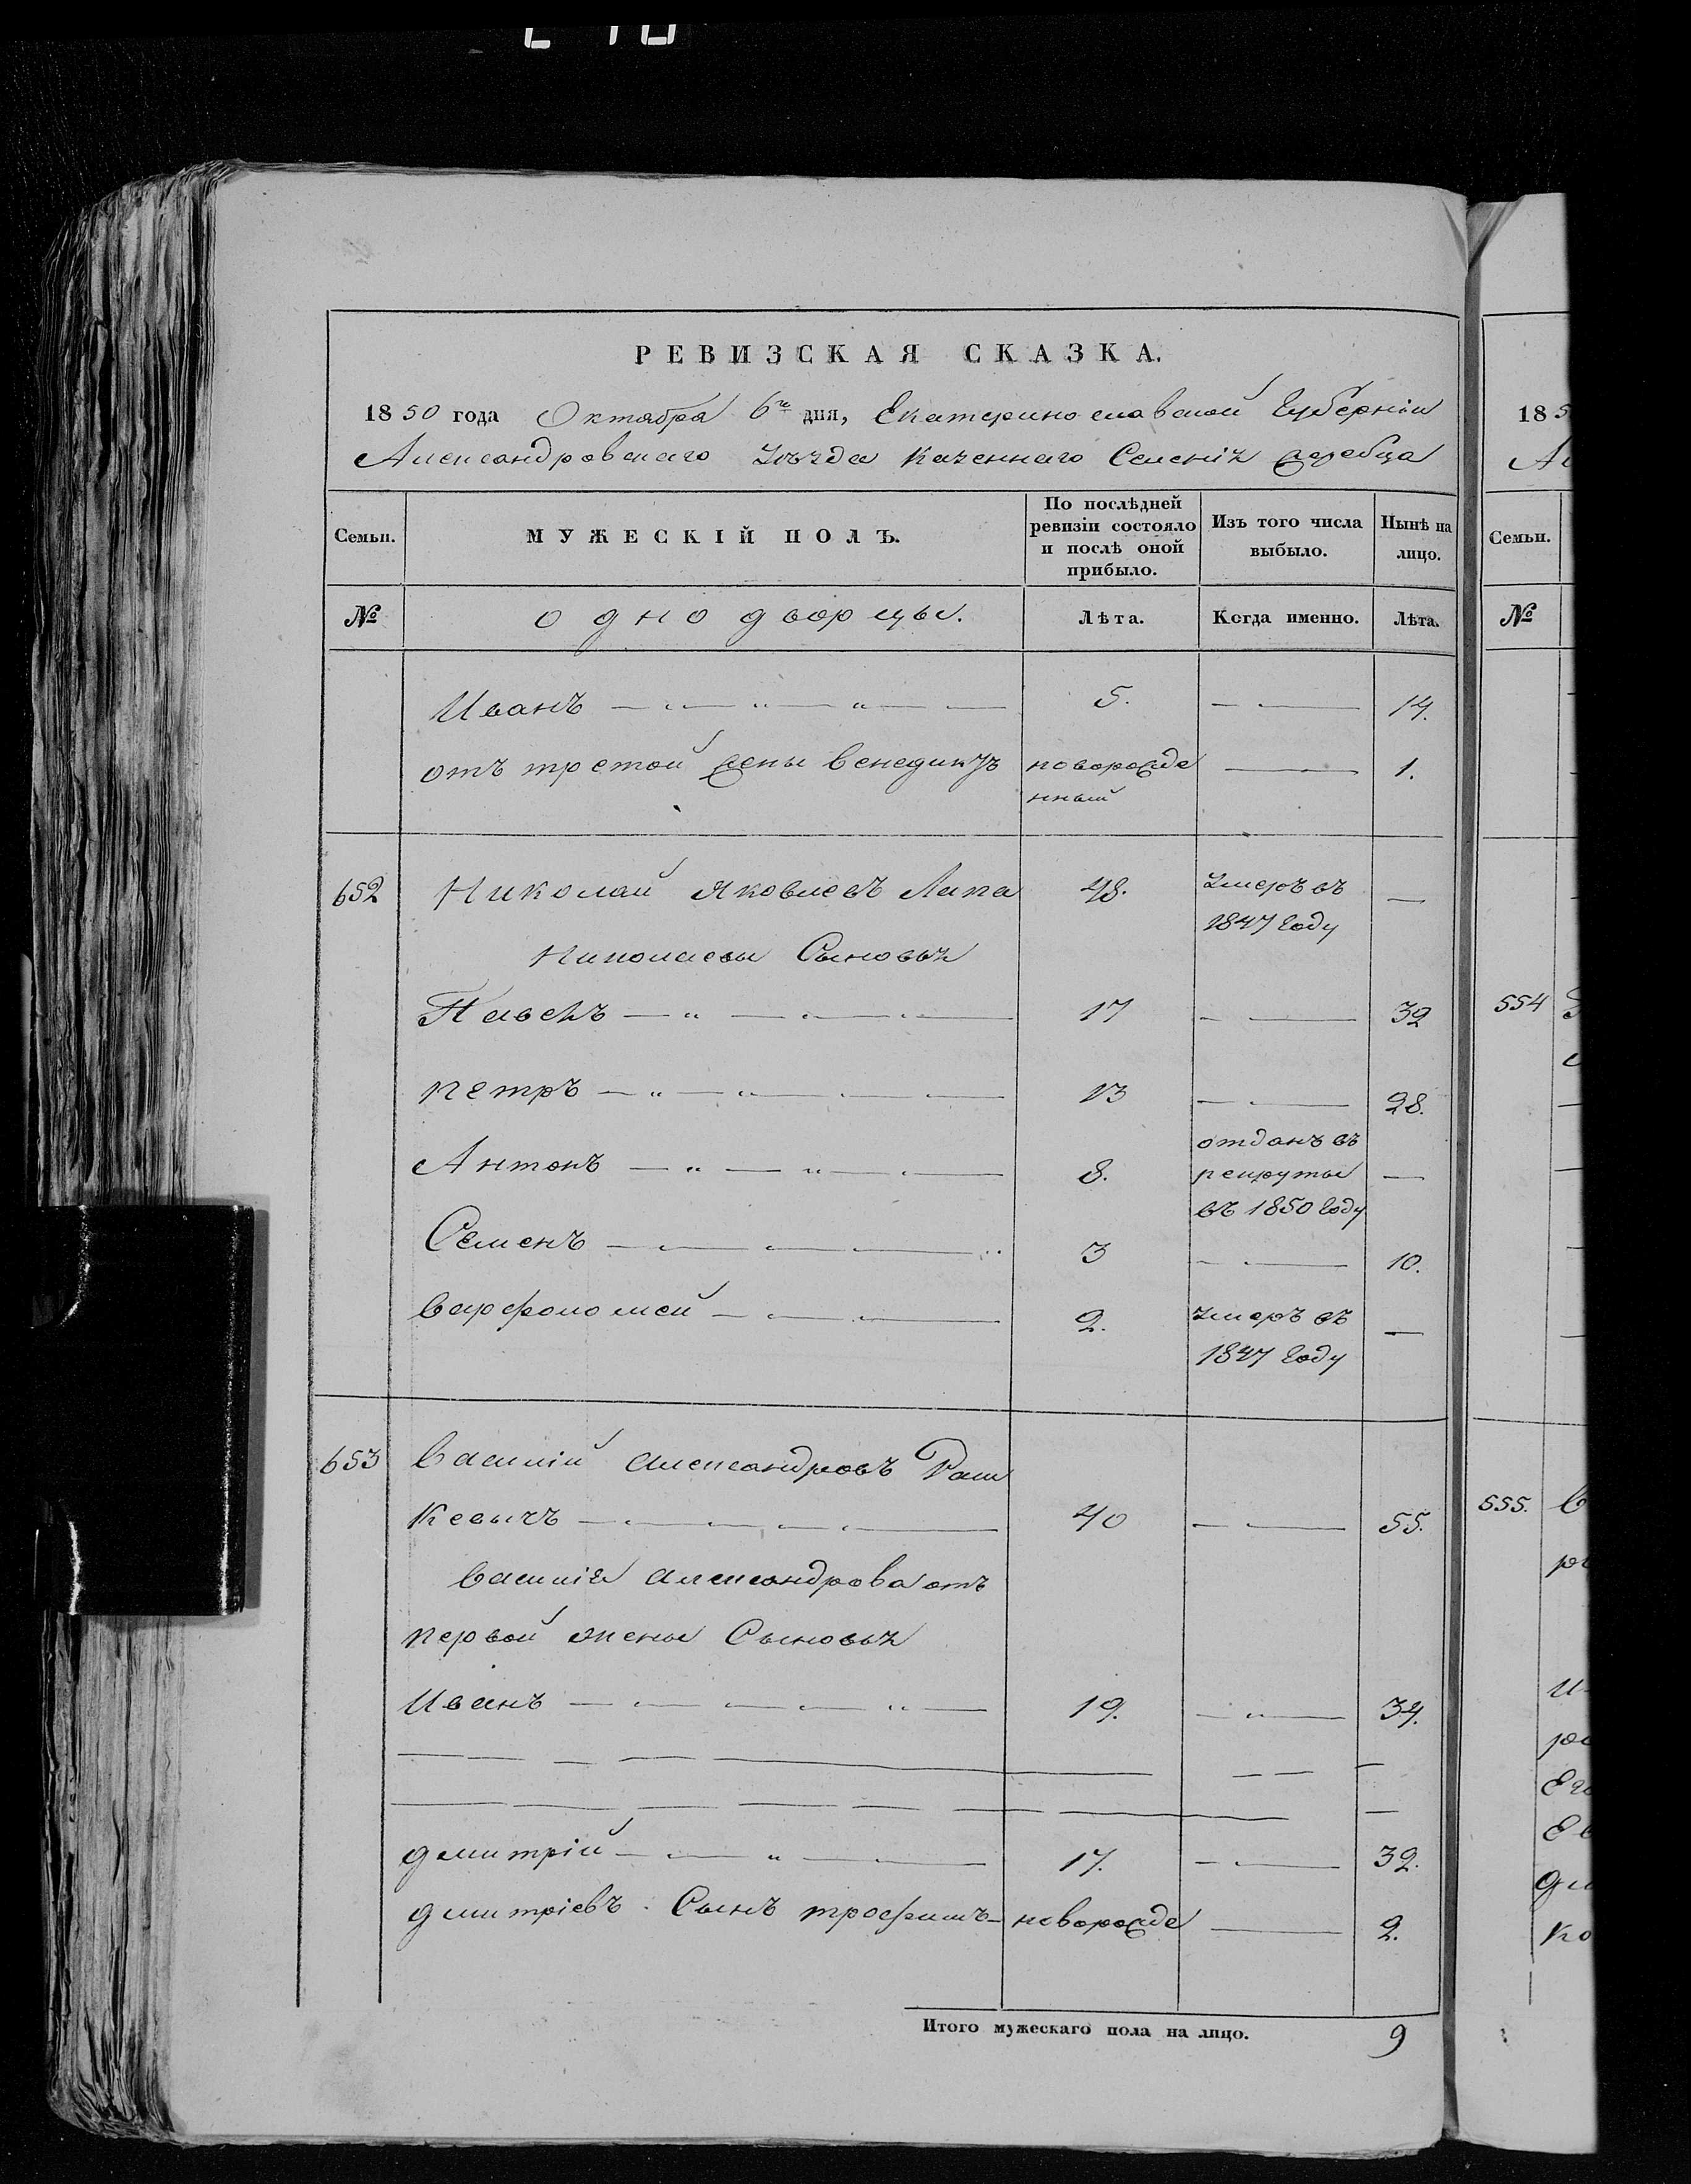 РЕВИЗСКАЯ СКАЗКА.
1850 года Октября 6го дня, Екатеринославской Губерніи
Александровскаго Уъзда Казеннаго Селенія Жеребца
Семьи.
МУЖЕСКІЙ ПОЛЪ.
По послѣдней ревизіи состояло и послѣ оной прибыло.
Изъ того числа выбыло.
Нынѣ на лицо.
№
однодворцы.
Лѣта.
Когда именно.
Лѣта.
Иванъ 5. 14.
отъ третой жены Венедиктъ новорожде 1.
нный
652 Николай Яковлевъ Лапа 48. умеръ въ —
1847 Году
Николаевы Сыновья
Павелъ 17 32
Петръ 13 28.
Антонъ 8. отданъ въ рекруты въ 1850 Году —
Семенъ 3 10.
Варфоломей 2. умеръ въ —
1847 Году
653 Василій Александровъ Раш
кевычъ 40 55.
Василія Александрова отъ
первой жены Сыновья
Иванъ 19. 34.
Дмитрій 17. 32.
Дмитріевъ Сынъ Трофимъ новорожде 2.
Итого мужескаго пола на лицо. 9
185
Семьи.
№
554
555.